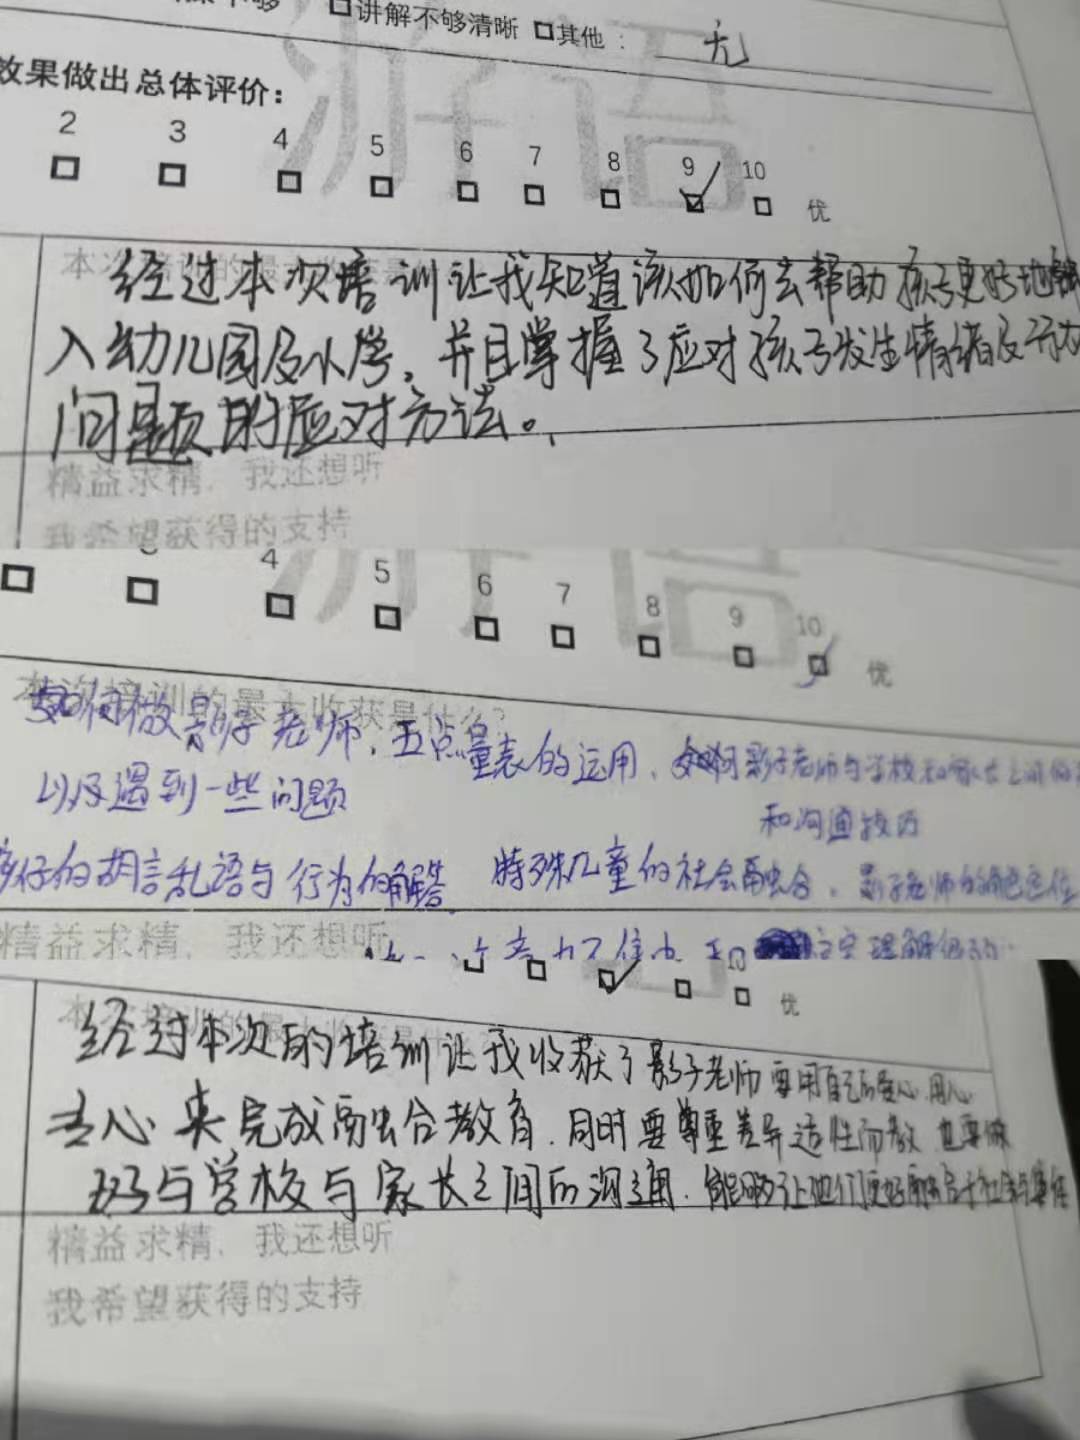 讲解不够清晰 其他： 无
效果做出总体评价：
2 3 4 5 6 7 8 9 10 优
本次培训的最大收获是什么
经过本次培训让我知道该如何去帮助孩子更好地融
入幼儿园及小学，并且掌握了应对孩子发生情绪及行为
问题的应对方法。
精益求精，我还想听
我希望获得的支持
4 5 6 7 8 9 10 优
本次培训的最大收获是什么？
如何做影子老师，五点量表的运用、如何影子老师与学校和家长之间的
以及遇到一些问题
和沟通技巧
孩仔的胡言乱语与行为的解答 特殊儿童的社会融合、影子老师的角色定位
精益求精，我还想听
10 优
经过本次的培训让我收获了影子老师要用自己的爱心、用心、
去心来完成融合教育，同时要尊重差异适性而教，也要做
好与学校与家长之间的沟通，能够让他们更好
精益求精，我还想听
我希望获得的支持